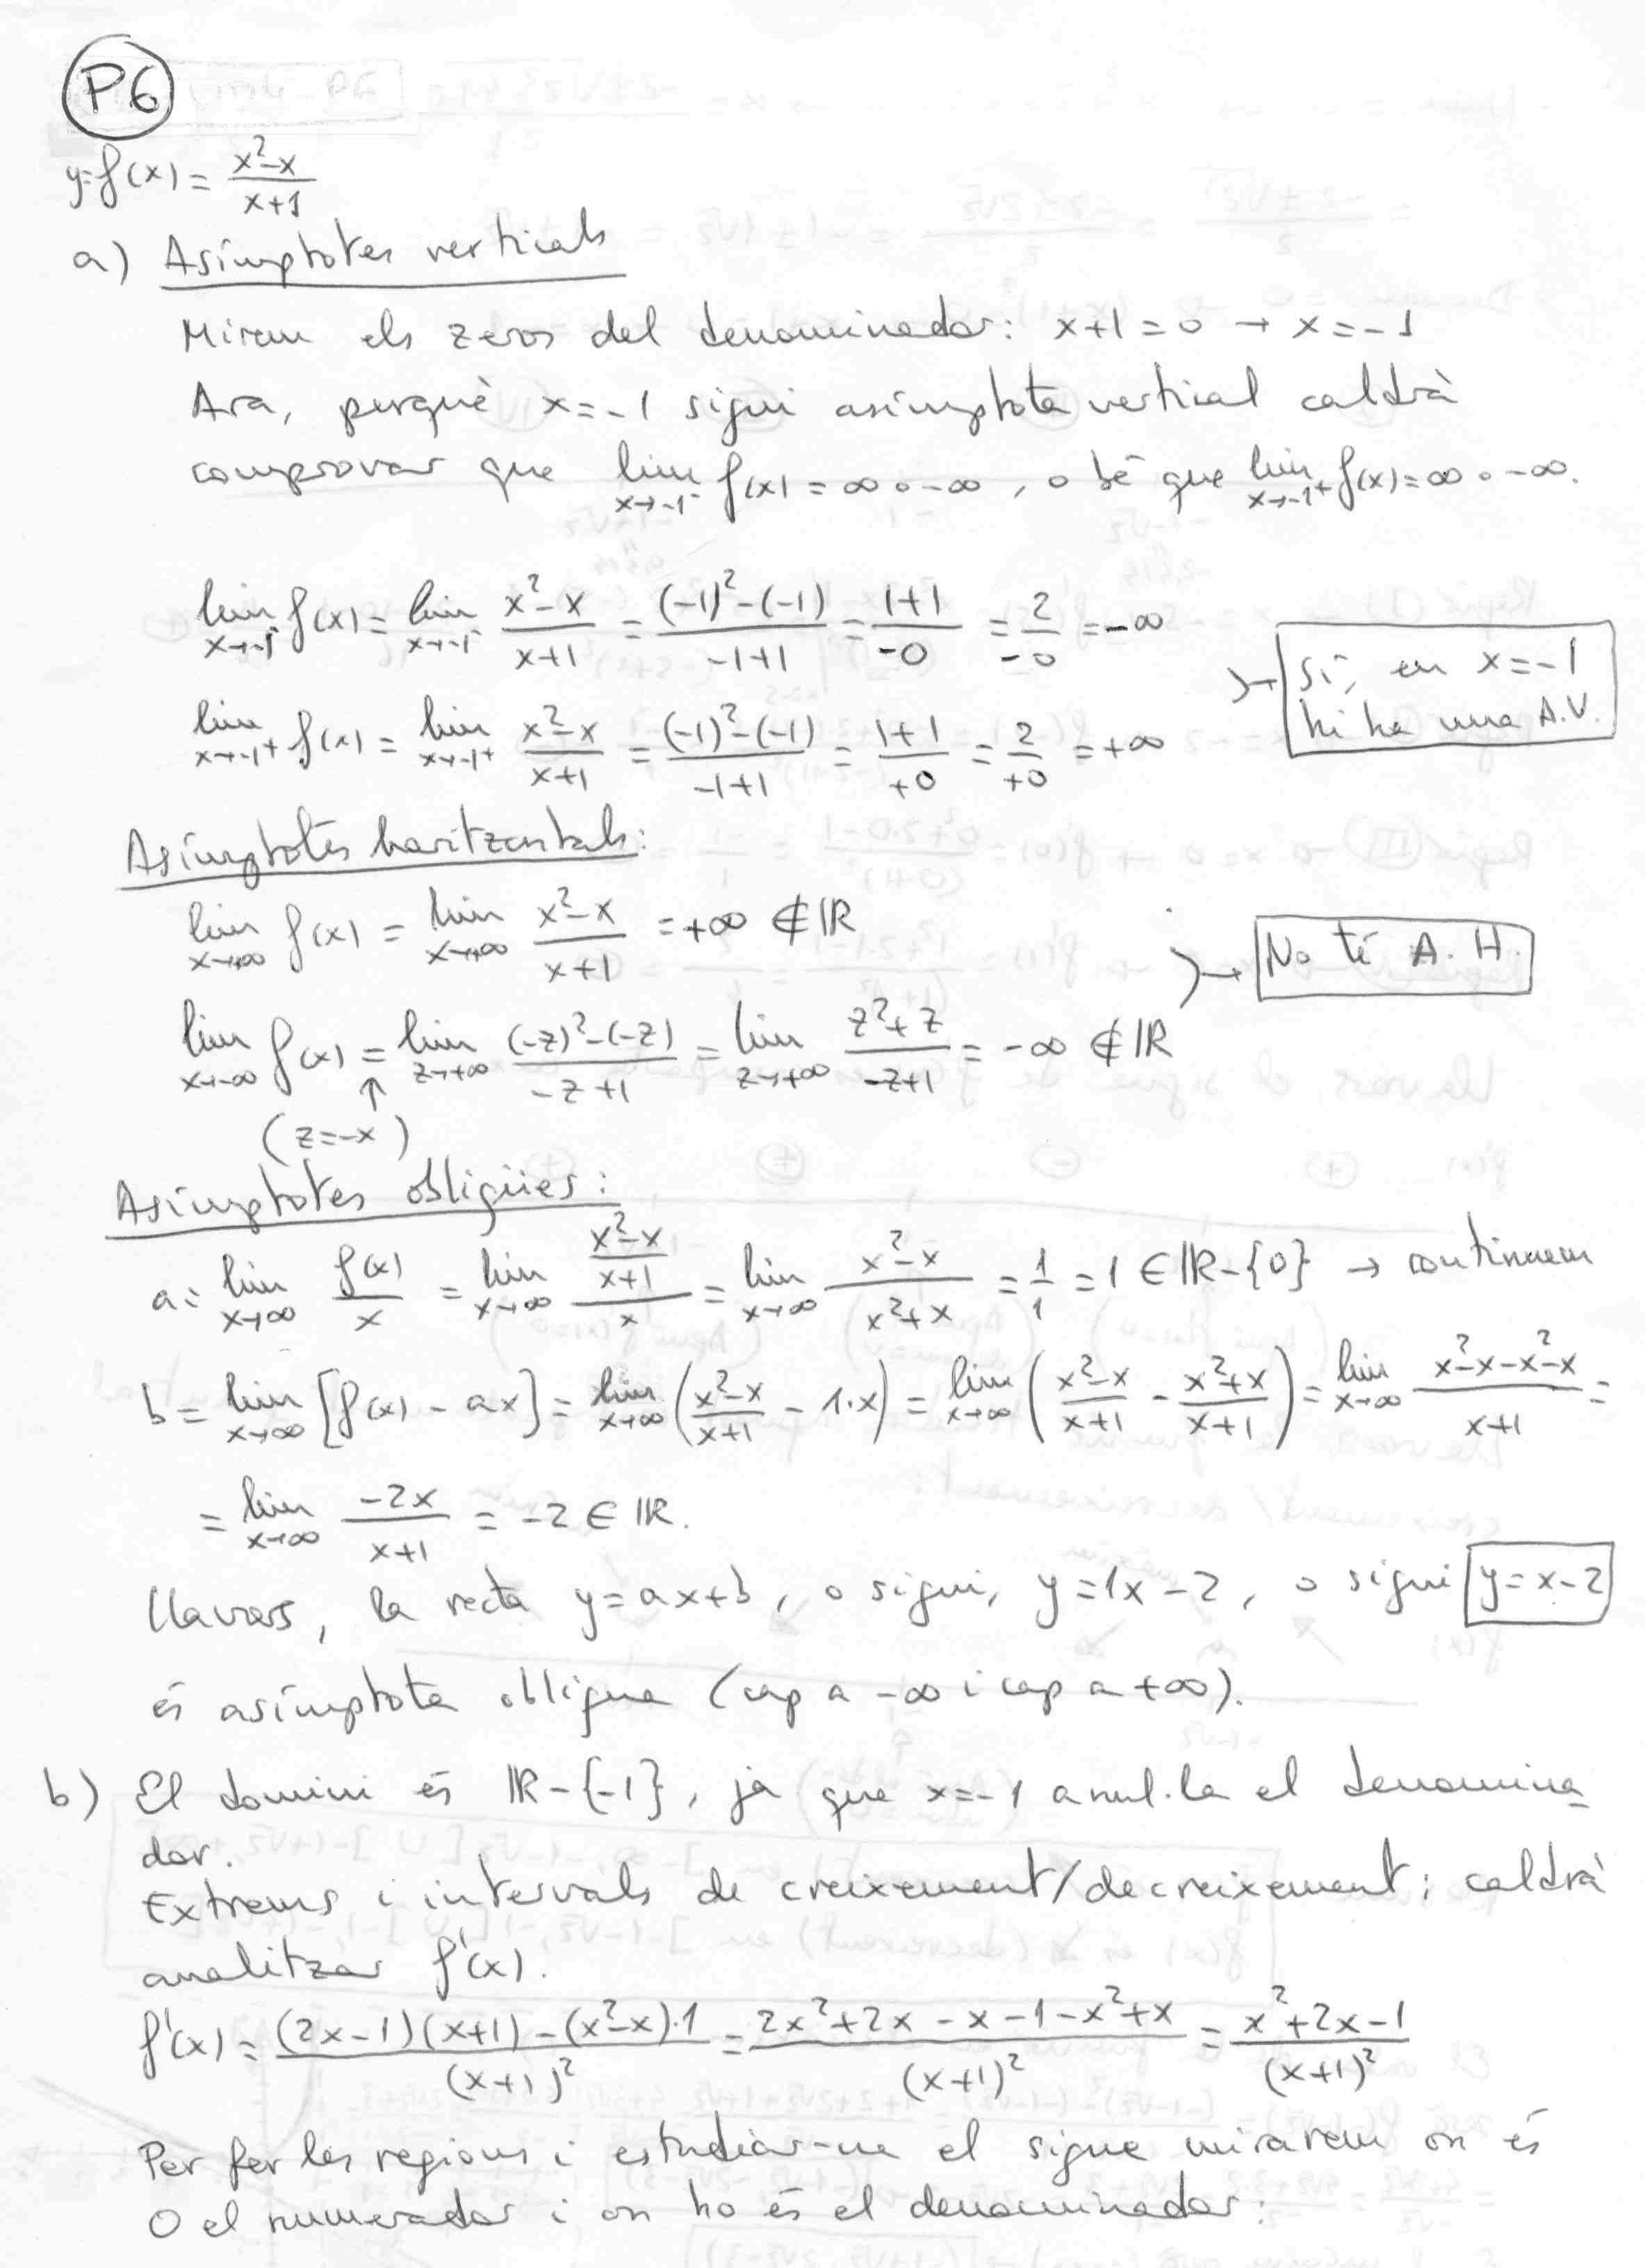 P6
y=f(x) = (x²-x)/(x+1)
a) Asímptotes verticals
Mirem els zeros del denominador: x+1=0 → x=-1
Ara, perquè x=-1 sigui asímptota vertical caldrà
comprovar que lim x→-1⁻ f(x) = ∞ o -∞, o bé que lim x→-1⁺ f(x) = ∞ o -∞.
lim x→-1⁻ f(x) = lim x→-1⁻ (x²-x)/(x+1) = ((-1)²-(-1))/(-1+1) = (1+1)/(-0) = 2/(-0) = -∞
Sí, en x=-1
hi ha una A.V.
lim x→-1⁺ f(x) = lim x→-1⁺ (x²-x)/(x+1) = ((-1)²-(-1))/(-1+1) = (1+1)/(+0) = 2/(+0) = +∞
Asímptotes horitzontals:
lim x→+∞ f(x) = lim x→+∞ (x²-x)/(x+1) = +∞ ∉ ℝ
No té A.H.
lim x→-∞ f(x) = lim z→+∞ ((-z)²-(-z))/(-z+1) = lim z→+∞ (z²+z)/(-z+1) = -∞ ∉ ℝ
↑
(z=-x)
Asímptotes obliqües:
a = lim x→∞ f(x)/x = lim x→∞ ((x²-x)/(x+1))/x = lim x→∞ (x²-x)/(x²+x) = 1/1 = 1 ∈ ℝ-{0} → continuem
b = lim x→∞ [f(x) - ax] = lim x→∞ ((x²-x)/(x+1) - 1·x) = lim x→∞ ((x²-x)/(x+1) - (x²+x)/(x+1)) = lim x→∞ (x²-x-x²-x)/(x+1) =
= lim x→∞ (-2x)/(x+1) = -2 ∈ ℝ.
Llavors, la recta y=ax+b, o sigui, y=1x-2, o sigui y=x-2
és asímptota obliqua (cap a -∞ i cap a +∞).
b) El domini és ℝ-{-1}, ja que x=-1 anul·la el denomina
dor.
Extrems i intervals de creixement/decreixement: caldrà
analitzar f'(x).
f'(x) = ((2x-1)(x+1)-(x²-x)·1)/(x+1)² = (2x²+2x-x-1-x²+x)/(x+1)² = (x²+2x-1)/(x+1)²
Per fer les regions i estudiar-ne el signe mirarem on és
0 el numerador i on ho és el denominador: